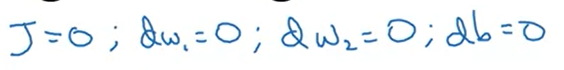 J=0 ; dw₁=0 ; dw₂=0 ; db=0